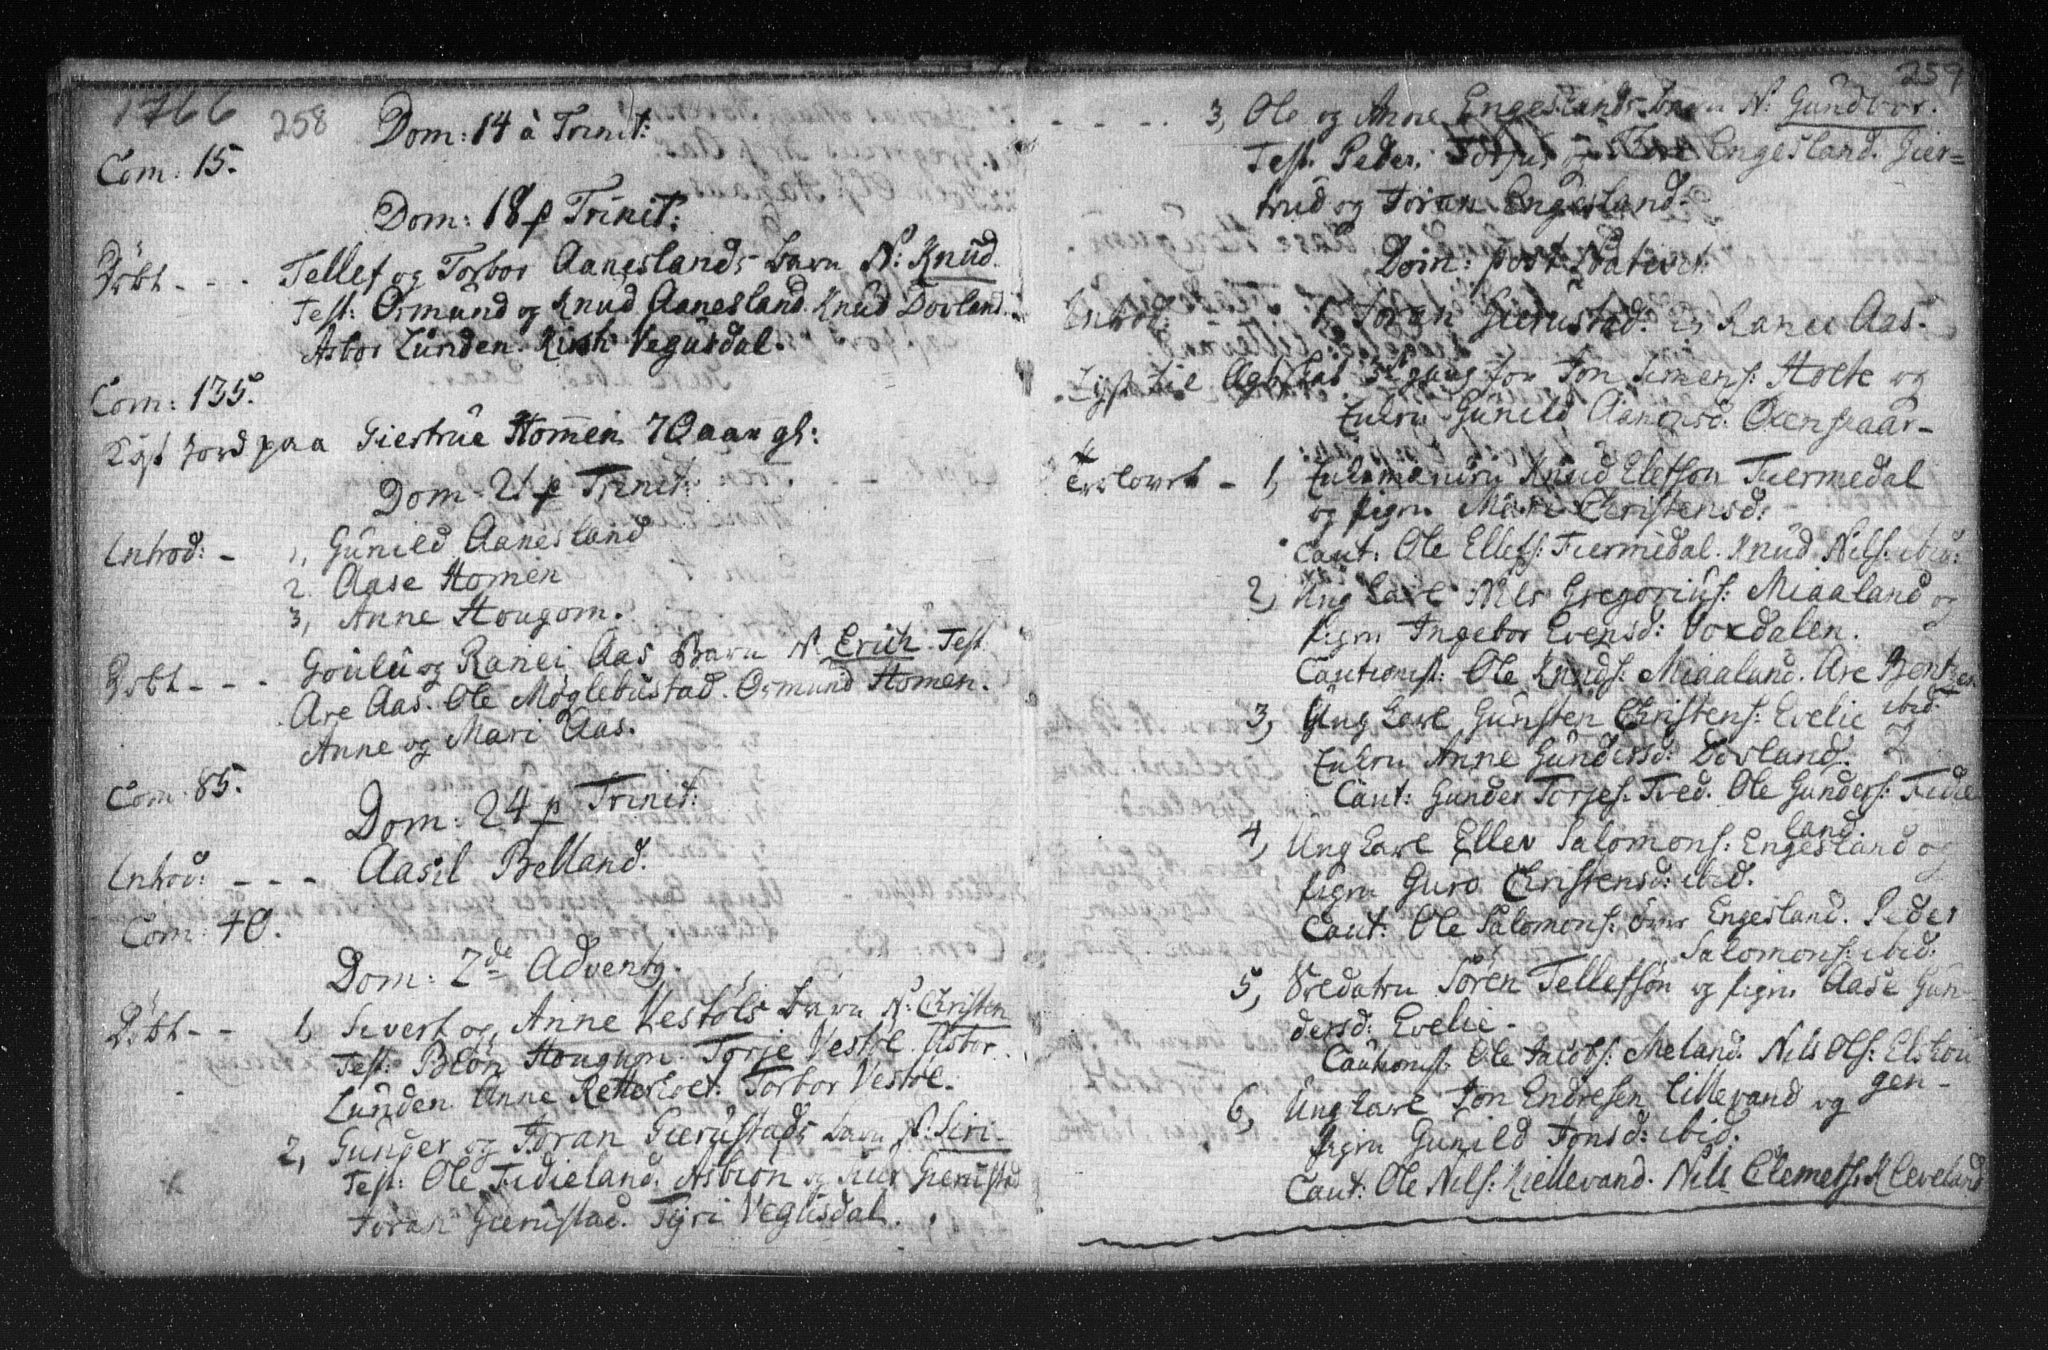 1766
258
Dom: 14 à Trinit:
Com: 15.
Dom: 18 p Trinit:
Döbt - - - Tellef og Torbor Aaneslands barn N: Knud.
Test: Ormund og Knud Aanesland. Knud Dovland.
Asbor Lunden. Kirsti Vegusdal.
Com: 135.
Kast Jord paa Giertrue Homen 70 aar gl:
Dom: 21 p Trinit:
Introd: - 1, Gunild Aanesland
2. Aase Homen
3, Anne Hougom.
Döbt - - - Goulu og Ranei Aas Barn N. Erich. Test
Are Aas. Ole Möglebustad. Ormund Homen.
Anne og Mari Aas.
Com: 85.
Dom: 24 p Trinit:
Introd: - - - Aasil Belland.
Com: 40.
Dom: 2de Advent
Döbt - - 1, Sivert og Anne Vestöls barn N: Christen
Test: Biön Hougum. Torje Vestöl. Asbor
Lunden. Anne Retterholt. Torbor Vestöl.
2, Gunder og Joran Gierustads barn N. Siri.
Test: Ole Fidieland. Asbiön og Gierustad
Joran Gierustad. Tyri Vegusdal.
259
- - - - 3, Ole og Anne Engeslands barn N: Gundbor.
Test. Peder, Torjus og Engesland. Gier=
trud og Joran Engesland.
Dom: post Nativit:
Introd: Joran Gierustad. 2, Ranei Aas.
Lyst til Ægteskab gang for Jon Simens: Holte og
Enkru Gunild Aanensd:
Trolovet - 1, Enkemanden Knud Elefson Fiermedal
og pigen Mari Christensd:
Caut: Ole Ellefs: Fiermedal. Knud Nils: ibid:
2, Ung karl Nils Gregorius: Miaaland og
pigen Ingebor Evensd: Voxdalen.
Cautionist: Ole Knuds: Miaaland. Are Bentsen
ibid.
3, Ung karl Gunsten Christens: Evelie og
Enkru Anne Gundersd: Dovland.
Caut: Gunder Torjes: Tved. Ole Gunders: Fidie
land.
4, Ung karl Ellev Salomons: Engesland og
pigen Guro Christensd: ibid.
Caut: Ole Salomons: Engesland. Peder
Salomons: ibid.
5, Sören Tellefsön og pigen Aase Gun-
dersd: Evelie.
Cautionist Ole Jacobs: Meland. Nils Ols:
gen-
6, Ung karl Jon Endresen Lillevand og
pigen Gunild Jonsd: ibid.
Caut: Ole Nils: Kiellevand. Nils Clemets: Kleveland